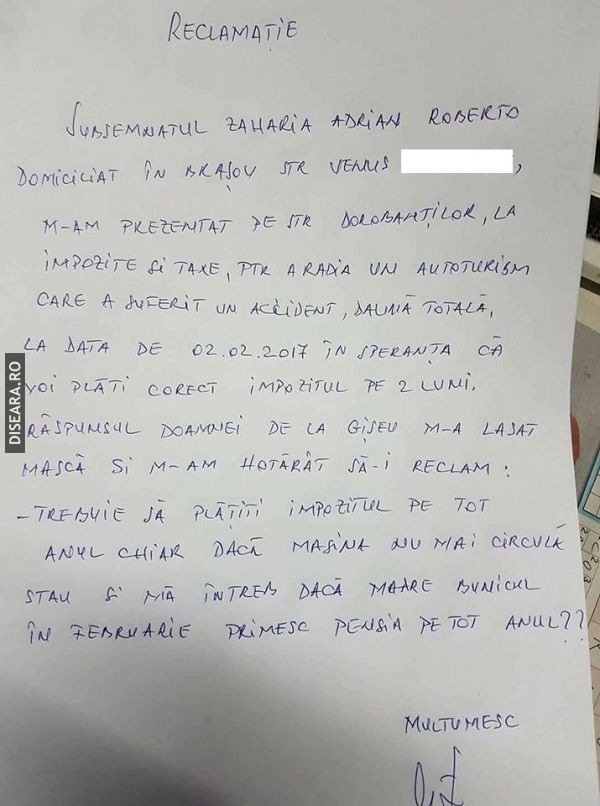 RECLAMAȚIE
SUBSEMNATUL ZAHARIA ADRIAN ROBERTO
DOMICILIAT ÎN BRAȘOV STR VENUS ,
M-AM PREZENTAT PE STR DOROBANȚILOR, LA
IMPOZITE SI TAXE, PTR A RADIA UN AUTOTURISM
CARE A SUFERIT UN ACCIDENT, DAUNĂ TOTALĂ,
LA DATA DE 02.02.2017 ÎN SPERANȚA CĂ
VOI PLĂTI CORECT IMPOZITUL PE 2 LUNI.
RĂSPUNSUL DOAMNEI DE LA GIȘEU M-A LASAT
MASCĂ SI M-AM HOTĂRÂT SĂ-I RECLAM:
-TREBUIE SĂ PLĂTITI IMPOZITUL PE TOT
ANUL CHIAR DACĂ MASINA NU MAI CIRCULĂ
STAU SI MĂ ÎNTREB DACĂ MOARE BUNICUL
ÎN FEBRUARIE PRIMESC PENSIA PE TOT ANUL??
MULTUMESC
DISEARA.RO